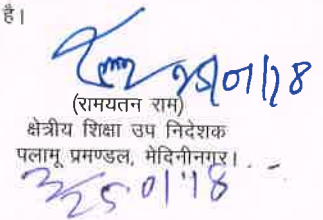 है।
25/01/18
(रामयतन राम)
क्षेत्रीय शिक्षा उप निदेशक
पलामू प्रमण्डल, मेदिनीनगर।
25/01/18